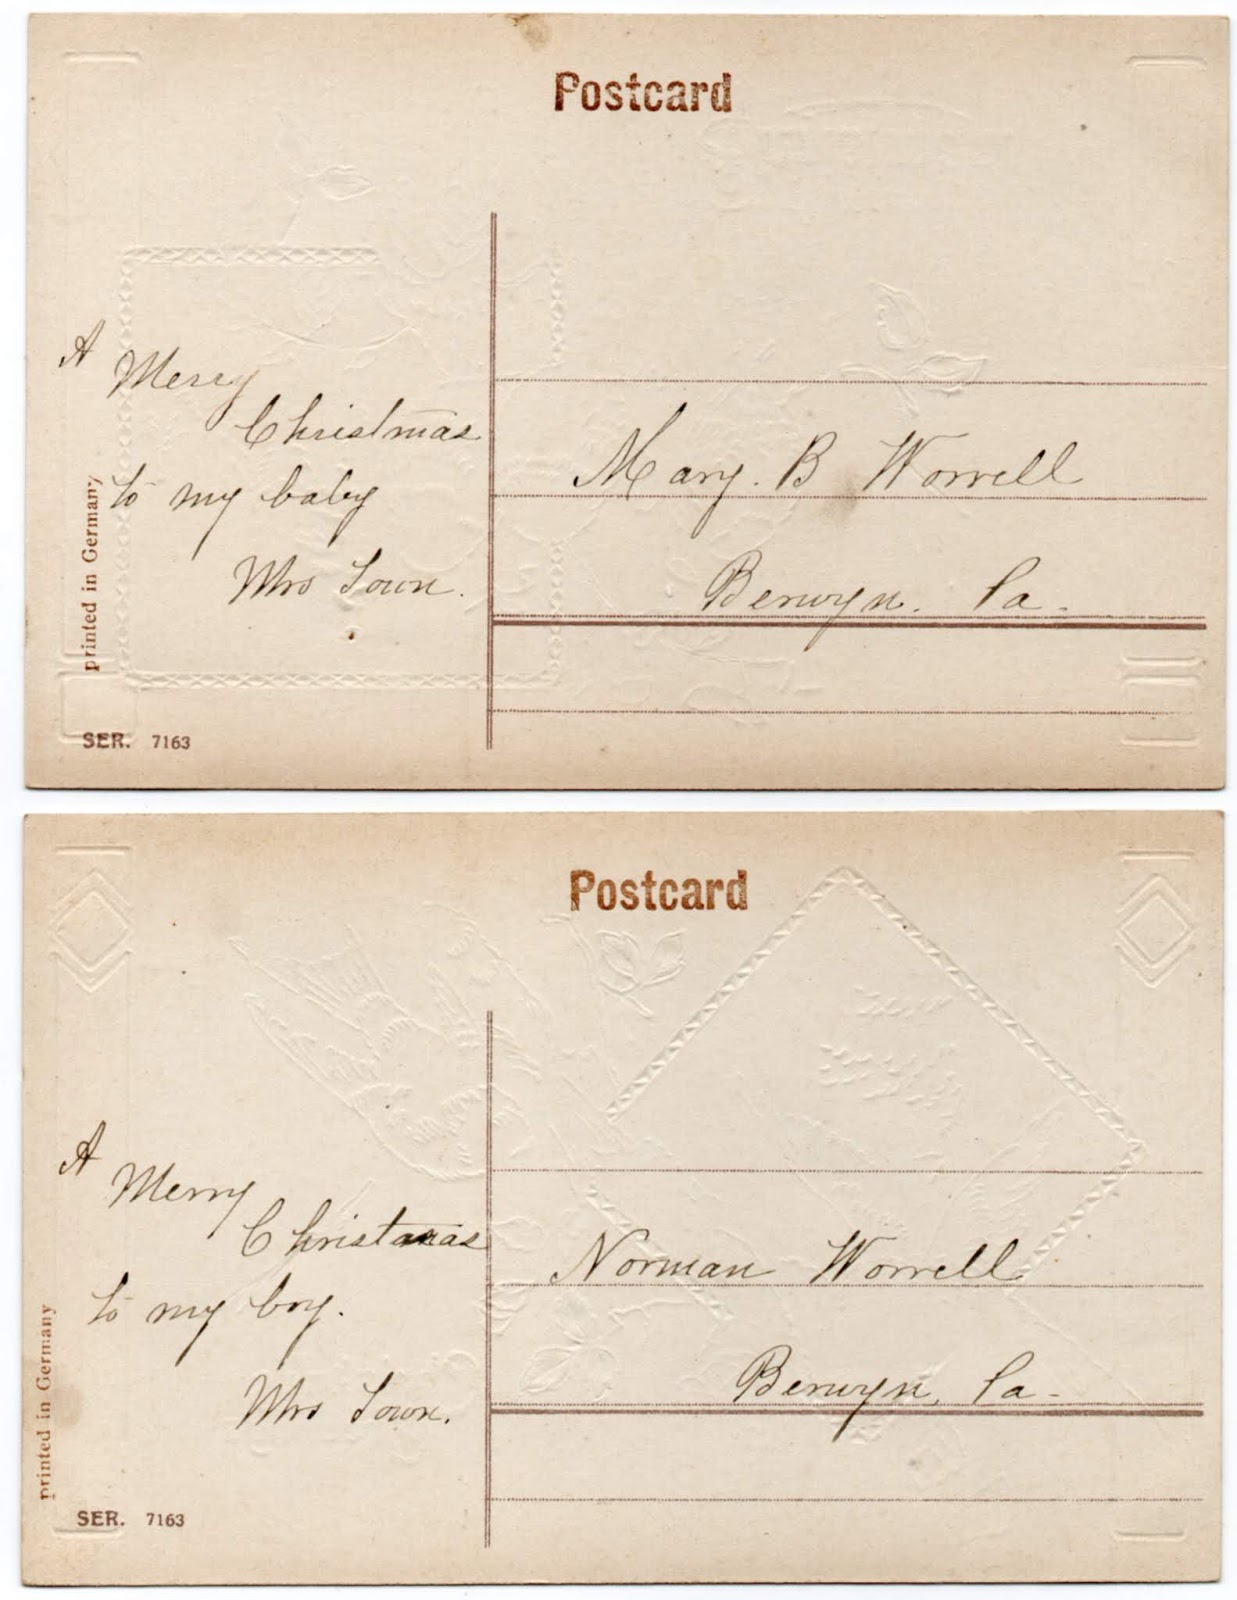 Postcard
A
Merry
Christmas
to my baby
Mrs Town.
Mary. B Worrell
Berwyn. Pa.
printed in Germany
SER. 7163
Postcard
A
Merry
Christmas
to my boy.
Mrs Town.
Norman Worrell
Berwyn, Pa.
printed in Germany
SER. 7163